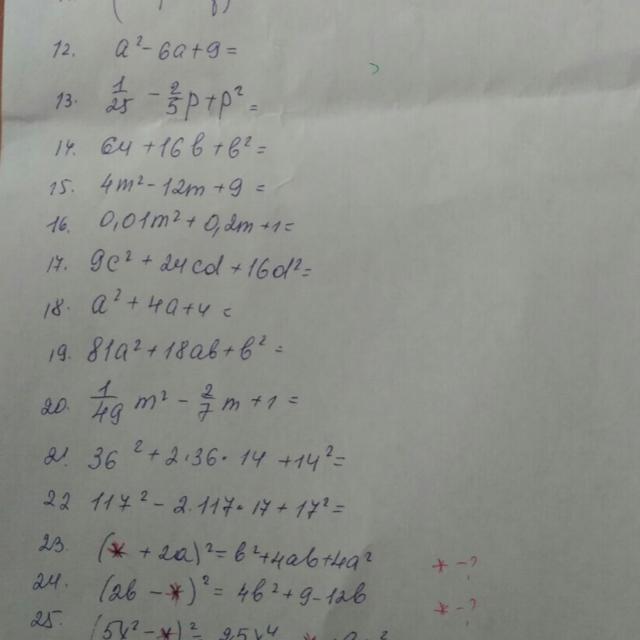 12. a² - 6a + 9 =
13. 1/25 - 2/5 p + p² =
14. 64 + 16b + b² =
15. 4m² - 12m + 9 =
16. 0,01m² + 0,2m + 1 =
17. 9c² + 24cd + 16d² =
18. a² + 4a + 4 =
19. 81a² + 18ab + b² =
20. 1/49 m² - 2/7 m + 1 =
21. 36² + 2·36·14 + 14² =
22 117² - 2·117·17 + 17² =
23. (* + 2a)² = b² + 4ab + 4a² * - ?
24. (2b - *)² = 4b² + 9 - 12b * - ?
25. (5x² - *)² = 25x⁴